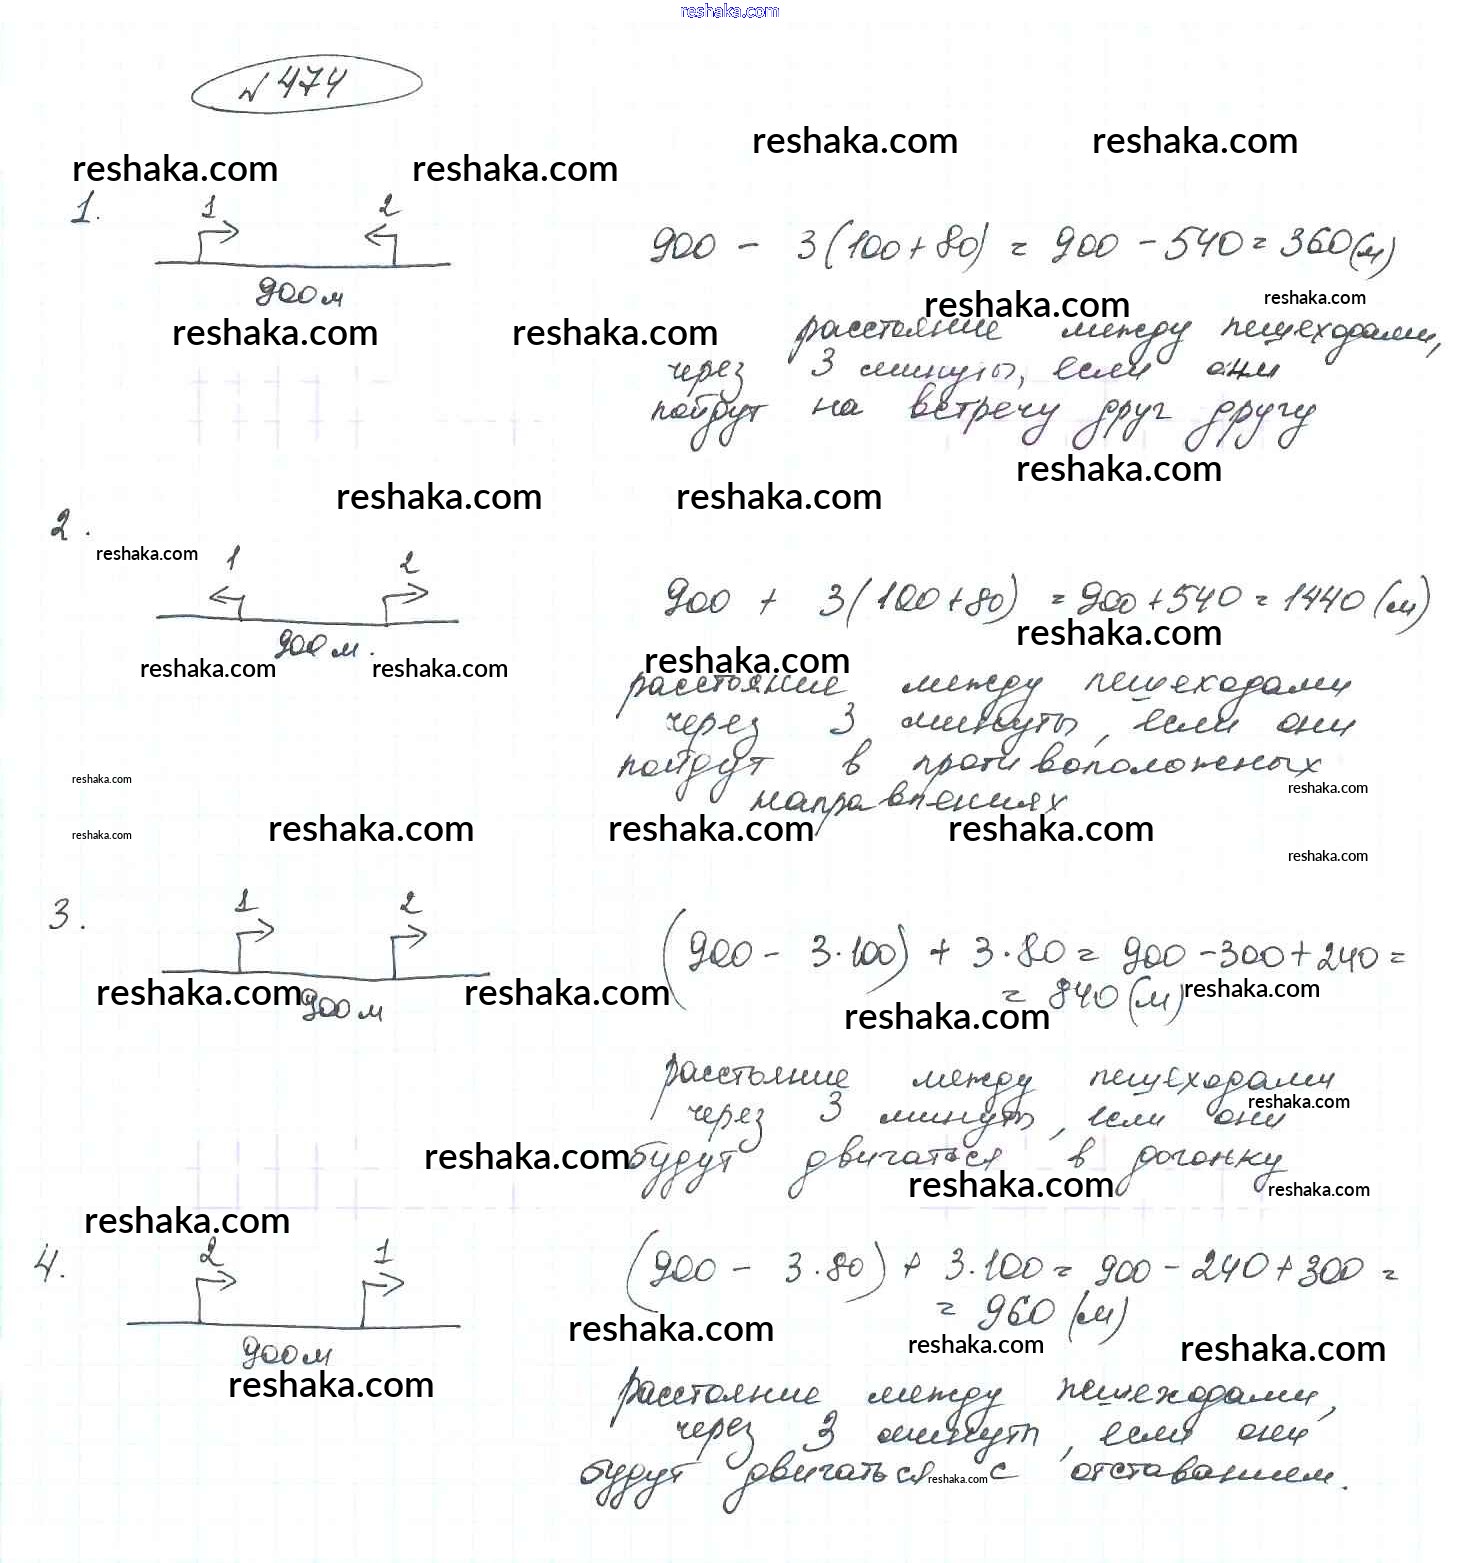 reshaka.com
№ 474
reshaka.com reshaka.com
reshaka.com reshaka.com
1.
1 2
900 м
900 - 3(100+80) = 900 - 540 = 360(м)
reshaka.com reshaka.com
reshaka.com reshaka.com
расстояние между пешеходами,
через 3 минуты, если они
пойдут на встречу друг другу
reshaka.com
reshaka.com reshaka.com
2.
reshaka.com
1 2
900 м.
900 + 3(100+80) = 900+540 = 1440 (м)
reshaka.com
reshaka.com reshaka.com reshaka.com
расстояние между пешеходами
через 3 минуты, если они
пойдут в противоположных
направлениях
reshaka.com reshaka.com
reshaka.com reshaka.com reshaka.com reshaka.com
reshaka.com
3.
1 2
900 м
(900 - 3·100) + 3·80 = 900 - 300 + 240 =
= 840 (м)
reshaka.com reshaka.com reshaka.com
reshaka.com
расстояние между пешеходами
через 3 минуты, если они
будут двигаться в догонку
reshaka.com
reshaka.com
reshaka.com reshaka.com
reshaka.com
4.
2 1
900 м
(900 - 3·80) + 3·100 = 900 - 240 + 300 =
= 960 (м)
reshaka.com reshaka.com reshaka.com
reshaka.com
расстояние между пешеходами,
через 3 минуты, если они
будут двигаться с отставанием.
reshaka.com